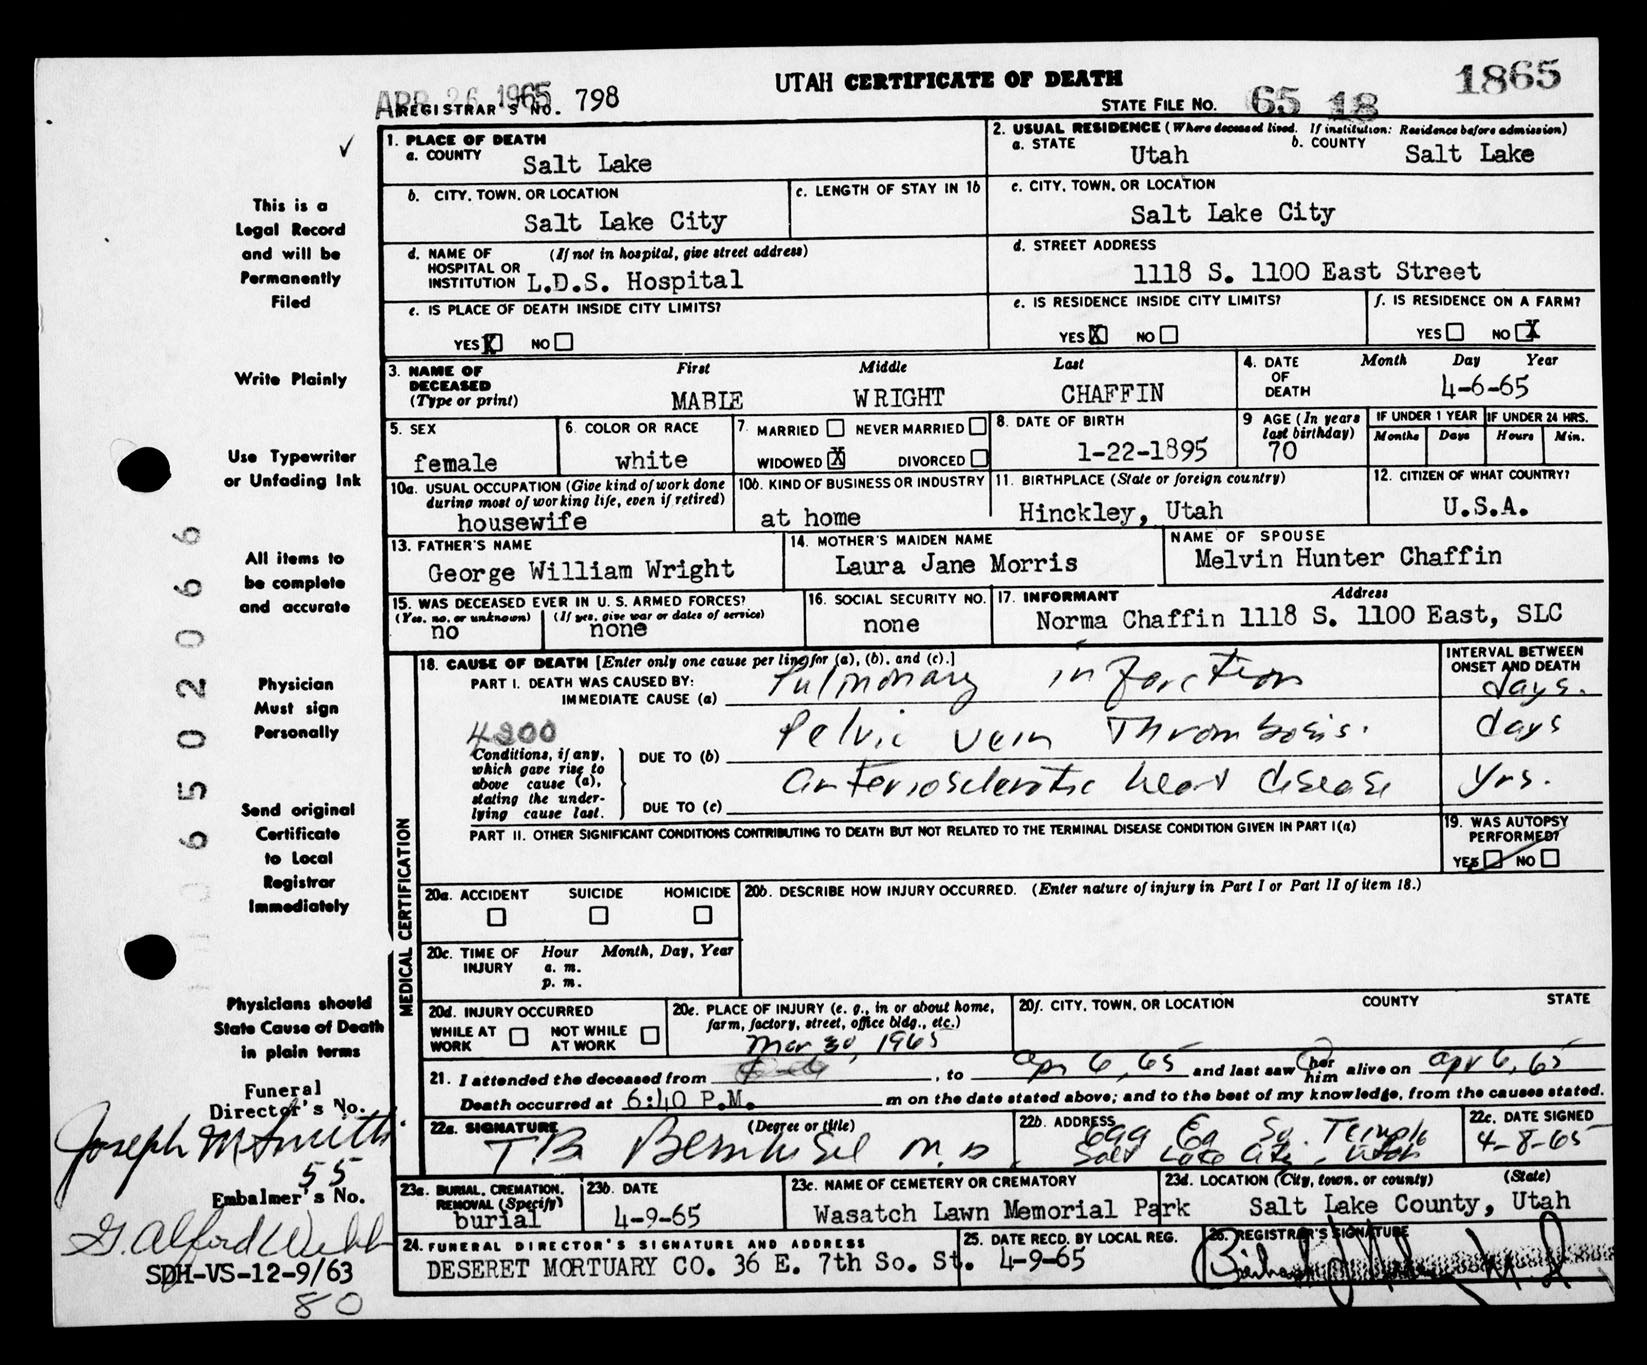 UTAH CERTIFICATE OF DEATH
1865
APR 26 1965
REGISTRAR'S NO. 798
STATE FILE NO. 65 18
1. PLACE OF DEATH
a. COUNTY Salt Lake
2. USUAL RESIDENCE (Where deceased lived. If institution: Residence before admission)
a. STATE Utah b. COUNTY Salt Lake
b. CITY, TOWN, OR LOCATION Salt Lake City
c. LENGTH OF STAY IN 1b
c. CITY, TOWN, OR LOCATION Salt Lake City
d. NAME OF HOSPITAL OR INSTITUTION (If not in hospital, give street address) L.D.S. Hospital
d. STREET ADDRESS 1118 S. 1100 East Street
e. IS PLACE OF DEATH INSIDE CITY LIMITS?
YES X NO
e. IS RESIDENCE INSIDE CITY LIMITS?
YES X NO
f. IS RESIDENCE ON A FARM?
YES NO X
3. NAME OF DECEASED (Type or print)
First Middle Last
MABLE WRIGHT CHAFFIN
4. DATE OF DEATH Month Day Year
4-6-65
5. SEX female
6. COLOR OR RACE white
7. MARRIED NEVER MARRIED
WIDOWED X DIVORCED
8. DATE OF BIRTH 1-22-1895
9 AGE (In years last birthday) 70
IF UNDER 1 YEAR Months Days
IF UNDER 24 HRS. Hours Min.
10a. USUAL OCCUPATION (Give kind of work done during most of working life, even if retired) housewife
10b. KIND OF BUSINESS OR INDUSTRY at home
11. BIRTHPLACE (State or foreign country) Hinckley, Utah
12. CITIZEN OF WHAT COUNTRY? U.S.A.
13. FATHER'S NAME George William Wright
14. MOTHER'S MAIDEN NAME Laura Jane Morris
NAME OF SPOUSE Melvin Hunter Chaffin
15. WAS DECEASED EVER IN U. S. ARMED FORCES?
(Yes, no, or unknown) no (If yes, give war or dates of service) none
16. SOCIAL SECURITY NO. none
17. INFORMANT Address
Norma Chaffin 1118 S. 1100 East, SLC
MEDICAL CERTIFICATION
18. CAUSE OF DEATH [Enter only one cause per line for (a), (b), and (c).]
INTERVAL BETWEEN ONSET AND DEATH
PART I. DEATH WAS CAUSED BY:
IMMEDIATE CAUSE (a) Pulmonary infarction days.
4200
Conditions, if any, which gave rise to above cause (a), stating the underlying cause last.
DUE TO (b) Pelvic vein Thrombosis. days
DUE TO (c) arteriosclerotic heart disease yrs.
PART II. OTHER SIGNIFICANT CONDITIONS CONTRIBUTING TO DEATH BUT NOT RELATED TO THE TERMINAL DISEASE CONDITION GIVEN IN PART I(a)
19. WAS AUTOPSY PERFORMED?
YES NO
20a. ACCIDENT SUICIDE HOMICIDE
20b. DESCRIBE HOW INJURY OCCURRED. (Enter nature of injury in Part I or Part II of item 18.)
20c. TIME OF INJURY Hour a. m. p. m. Month, Day, Year
20d. INJURY OCCURRED
WHILE AT WORK NOT WHILE AT WORK
20e. PLACE OF INJURY (e. g., in or about home, farm, factory, street, office bldg., etc.)
20f. CITY, TOWN, OR LOCATION COUNTY STATE
Mar 30, 1965
21. I attended the deceased from , to Apr 6, 65 and last saw her him alive on Apr 6, 65
Death occurred at 6:40 P.M. m on the date stated above; and to the best of my knowledge, from the causes stated.
22a. SIGNATURE (Degree or title)
T.B. Bernhisel M.D.
22b. ADDRESS
So. Temple
Salt Lake City, Utah
22c. DATE SIGNED
4-8-65
23a. BURIAL, CREMATION, REMOVAL (Specify) burial
23b. DATE 4-9-65
23c. NAME OF CEMETERY OR CREMATORY Wasatch Lawn Memorial Park
23d. LOCATION (City, town, or county) (State)
Salt Lake County, Utah
24. FUNERAL DIRECTOR'S SIGNATURE AND ADDRESS
DESERET MORTUARY CO. 36 E. 7th So. St.
25. DATE RECD. BY LOCAL REG. 4-9-65
26. REGISTRAR'S SIGNATURE
This is a
Legal Record
and will be
Permanently
Filed
Write Plainly
Use Typewriter
or Unfading Ink
All items to
be complete
and accurate
Physician
Must sign
Personally
Send original
Certificate
to Local
Registrar
Immediately
Physicians should
State Cause of Death
in plain terms
Funeral
Director's No.
Joseph M Smith
55
Embalmer's No.
G. Alford Webb
SDH-VS-12-9/63
80
6502066